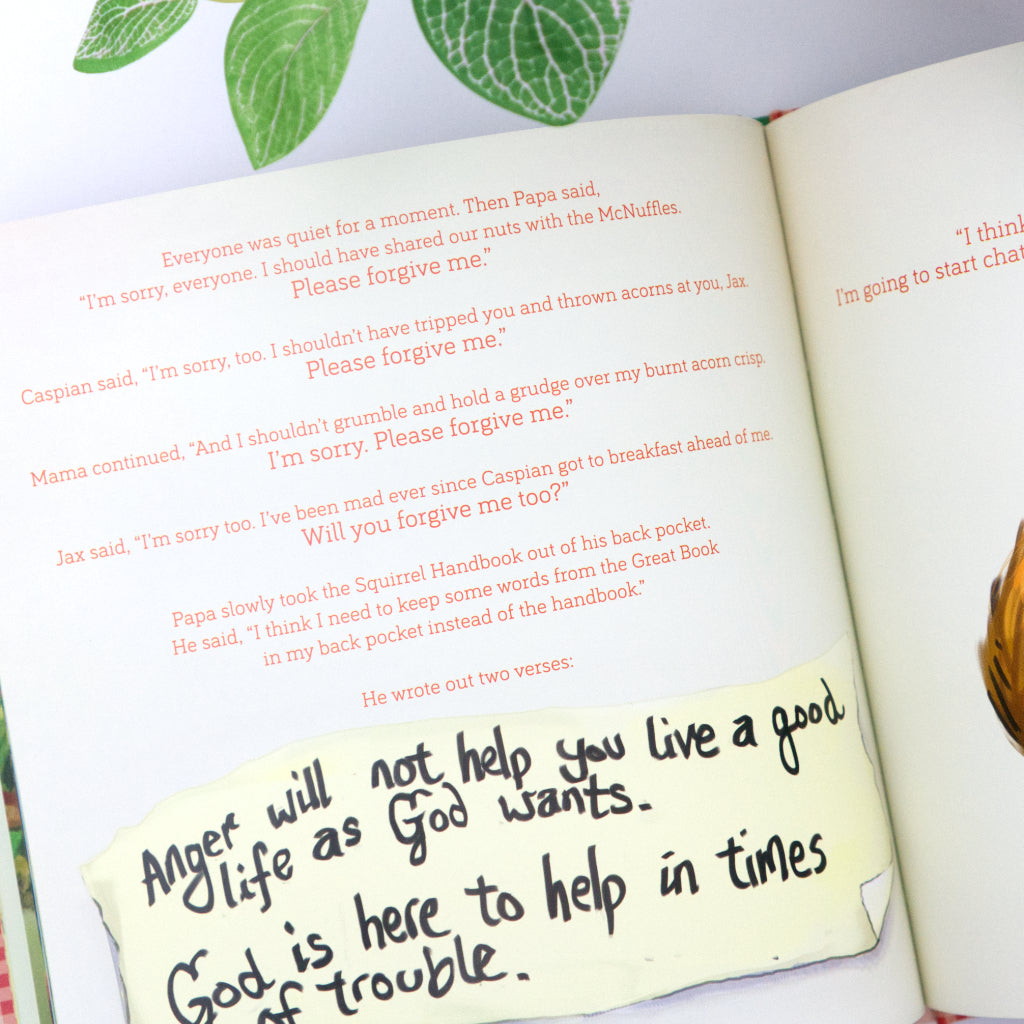 Everyone was quiet for a moment. Then Papa said,
“I’m sorry, everyone. I should have shared our nuts with the McNuffles.
Please forgive me.”
Caspian said, “I’m sorry, too. I shouldn’t have tripped you and thrown acorns at you, Jax.
Please forgive me.”
Mama continued, “And I shouldn’t grumble and hold a grudge over my burnt acorn crisp.
I’m sorry. Please forgive me.”
Jax said, “I’m sorry too. I’ve been mad ever since Caspian got to breakfast ahead of me.
Will you forgive me too?”
Papa slowly took the Squirrel Handbook out of his back pocket.
He said, “I think I need to keep some words from the Great Book
in my back pocket instead of the handbook.”
He wrote out two verses:
Anger will not help you live a good
life as God wants.
God is here to help in times
of trouble.
“I think
I’m going to start